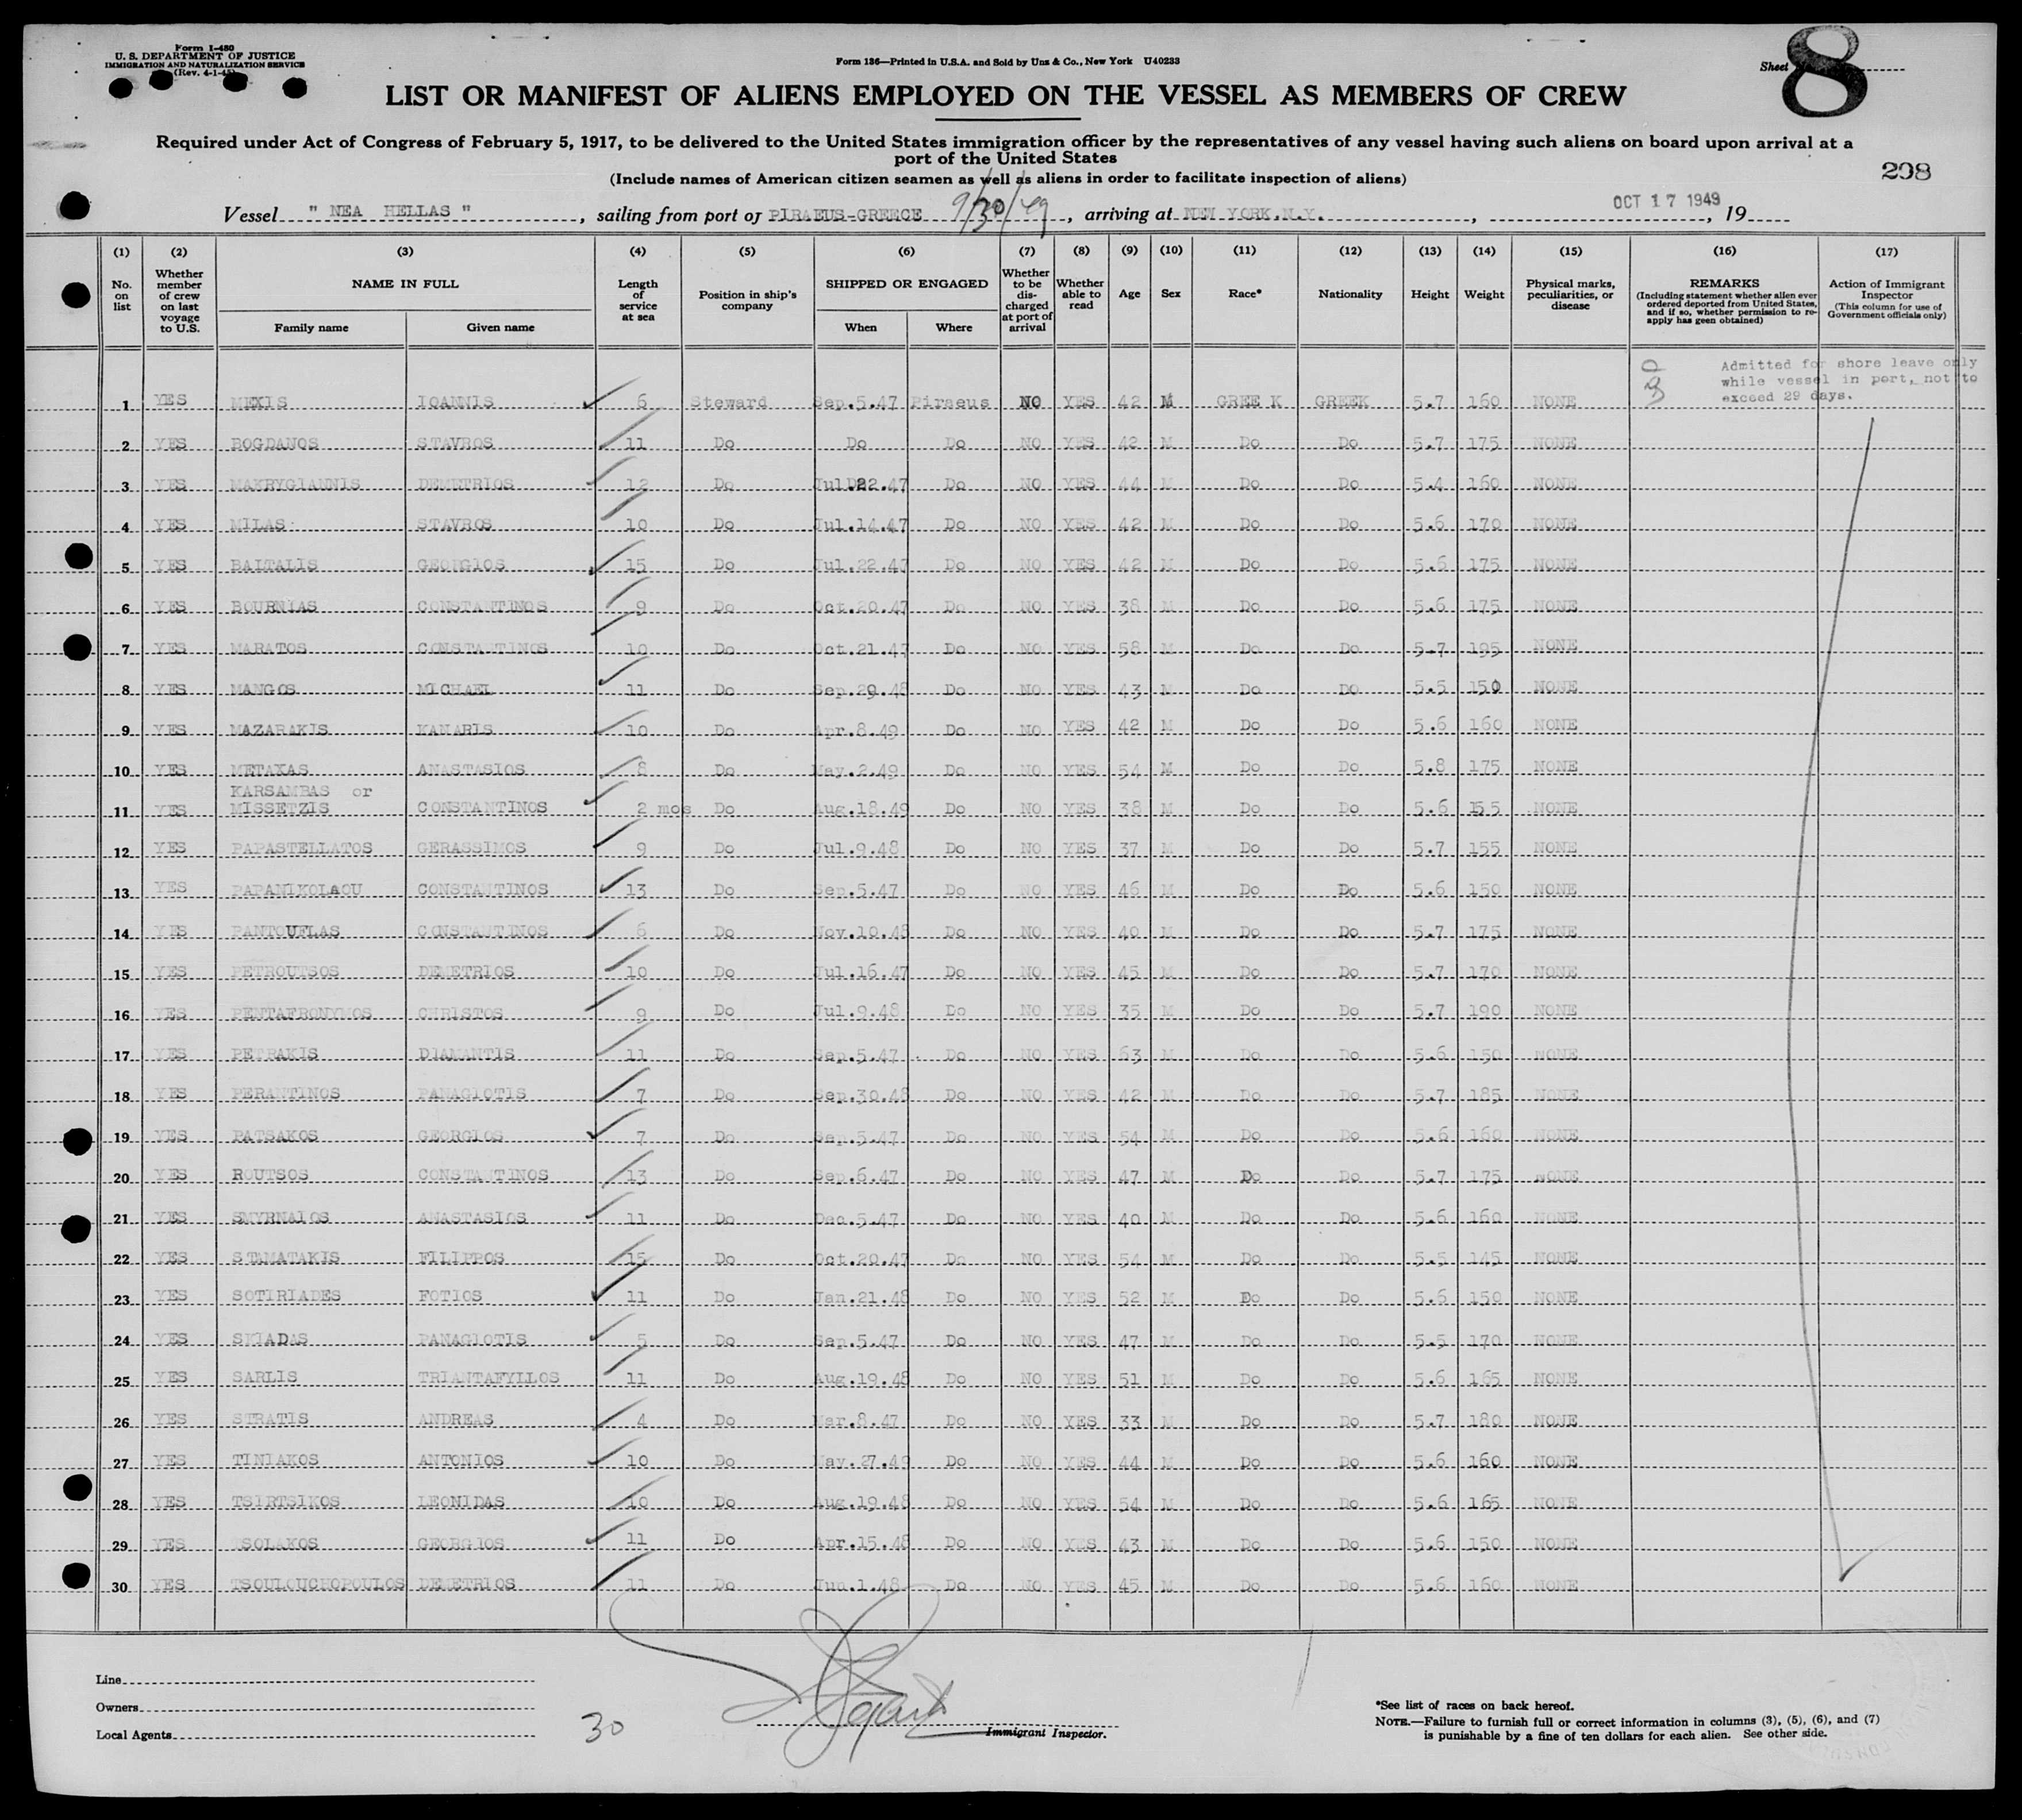 Form I-480
U. S. DEPARTMENT OF JUSTICE
IMMIGRATION AND NATURALIZATION SERVICE
(Rev. 4-1-45)
Form 136—Printed in U.S.A. and Sold by Unz & Co., New York U40233
Sheet 8
LIST OR MANIFEST OF ALIENS EMPLOYED ON THE VESSEL AS MEMBERS OF CREW
Required under Act of Congress of February 5, 1917, to be delivered to the United States immigration officer by the representatives of any vessel having such aliens on board upon arrival at a
port of the United States
(Include names of American citizen seamen as well as aliens in order to facilitate inspection of aliens)
298
Vessel " NEA HELLAS ", sailing from port of PIRAEUS-GREECE 9/30/49, arriving at NEW YORK.N.Y., OCT 17 1949, 19
(1) No. on list
(2) Whether member of crew on last voyage to U.S.
(3) NAME IN FULL Family name Given name
(4) Length of service at sea
(5) Position in ship's company
(6) SHIPPED OR ENGAGED When Where
(7) Whether to be dis-charged at port of arrival
(8) Whether able to read
(9) Age
(10) Sex
(11) Race*
(12) Nationality
(13) Height
(14) Weight
(15) Physical marks, peculiarities, or disease
(16) REMARKS (Including statement whether alien ever ordered deported from United States, and if so, whether permission to re-apply has geen obtained)
(17) Action of Immigrant Inspector (This column for use of Government officials only)
Admitted for shore leave only
while vessel in port, not to
exceed 29 days.
1 YES MEXIS IOANNIS 6 Steward Sep.5.47 Piraeus NO YES 42 M GREE K GREEK 5.7 160 NONE
2 YES BOGDANOS STAVROS 11 Do Do Do NO YES 42 M Do Do 5.7 175 NONE
3 YES MAKRYGIANNIS DEMETRIOS 12 Do Jul.22.47 Do NO YES 44 M Do Do 5.4 160 NONE
4 YES MILAS STAVROS 10 Do Jul.14.47 Do NO YES 42 M Do Do 5.6 170 NONE
5 YES BALTALIS GEORGIOS 15 Do Jul.22.47 Do NO YES 42 M Do Do 5.6 175 NONE
6 YES BOURNIAS CONSTANTINOS 9 Do Oct.20.47 Do NO YES 38 M Do Do 5.6 175 NONE
7 YES MARATOS CONSTANTINOS 10 Do Oct.21.47 Do NO YES 58 M Do Do 5.7 195 NONE
8 YES MANGOS MICHAEL 11 Do Sep.29.48 Do NO YES 43 M Do DO 5.5 150 NONE
9 YES MAZARAKIS KANARIS 10 Do Apr.8.49 Do NO YES 42 M Do Do 5.6 160 NONE
10 YES METAXAS ANASTASIOS 8 Do May.2.49 Do NO YES 54 M Do Do 5.8 175 NONE
KARSAMBAS or
11 YES MISSETZIS CONSTANTINOS 2 mos Do Aug.18.49 Do NO YES 38 M Do Do 5.6 155 NONE
12 YES PAPASTELLATOS GERASSIMOS 9 Do Jul.9.48 Do NO YES 37 M Do Do 5.7 155 NONE
13 YES PAPANIKOLAOU CONSTANTINOS 13 Do Sep.5.47 Do NO YES 46 M Do Do 5.6 150 NONE
14 YES PANTOUFLAS CONSTANTINOS 6 Do Nov.10.48 Do NO YES 40 M Do Do 5.7 175 NONE
15 YES PETROUTSOS DEMETRIOS 10 Do Jul.16.47 Do NO YES 45 M Do Do 5.7 170 NONE
16 YES PENTAFRONYMOS CHRISTOS 9 Do Jul.9.48 Do NO YES 35 M Do Do 5.7 190 NONE
17 YES PETRAKIS DIAMANTIS 11 Do Sep.5.47 Do NO YES 63 M Do Do 5.6 150 NONE
18 YES PERANTINOS PANAGIOTIS 7 Do Sep.30.48 Do NO YES 42 M Do Do 5.7 185 NONE
19 YES PATSAKOS GEORGIOS 7 Do Sep.5.47 Do NO YES 54 M Do Do 5.6 160 NONE
20 YES ROUTSOS CONSTANTINOS 13 Do Sep.6.47 Do NO YES 47 M Do Do 5.7 175 NONE
21 YES SMYRNAIOS ANASTASIOS 11 Do Dec.5.47 Do NO YES 40 M Do Do 5.6 160 NONE
22 YES STAMATAKIS FILIPPOS 15 Do Oct.20.47 Do NO YES 54 M Do Do 5.5 145 NONE
23 YES SOTIRIADES FOTIOS 11 Do Jan.21.48 Do NO YES 52 M Do Do 5.6 150 NONE
24 YES SKIADAS PANAGIOTIS 5 Do Sep.5.47 Do NO YES 47 M Do Do 5.5 170 NONE
25 YES SARLIS TRIANTAFYLLOS 11 Do Aug.19.48 Do NO YES 51 M Do Do 5.6 165 NONE
26 YES STRATIS ANDREAS 4 Do Mar.8.47 Do NO YES 33 M Do Do 5.7 180 NONE
27 YES TINIAKOS ANTONIOS 10 Do May.27.49 Do NO YES 44 M Do Do 5.6 160 NONE
28 YES TSIRTSIKOS LEONIDAS 10 Do Aug.19.48 Do NO YES 54 M Do Do 5.6 165 NONE
29 YES TSOLAKOS GEORGIOS 11 Do Apr.15.48 Do NO YES 43 M Do Do 5.6 150 NONE
30 YES TSOULOUCHOPOULOS DEMETRIOS 11 Do Jun.1.48 Do NO YES 45 M Do Do 5.6 160 NONE
Line
Owners
Local Agents
30
Immigrant Inspector.
*See list of races on back hereof.
NOTE.—Failure to furnish full or correct information in columns (3), (5), (6), and (7)
is punishable by a fine of ten dollars for each alien. See other side.